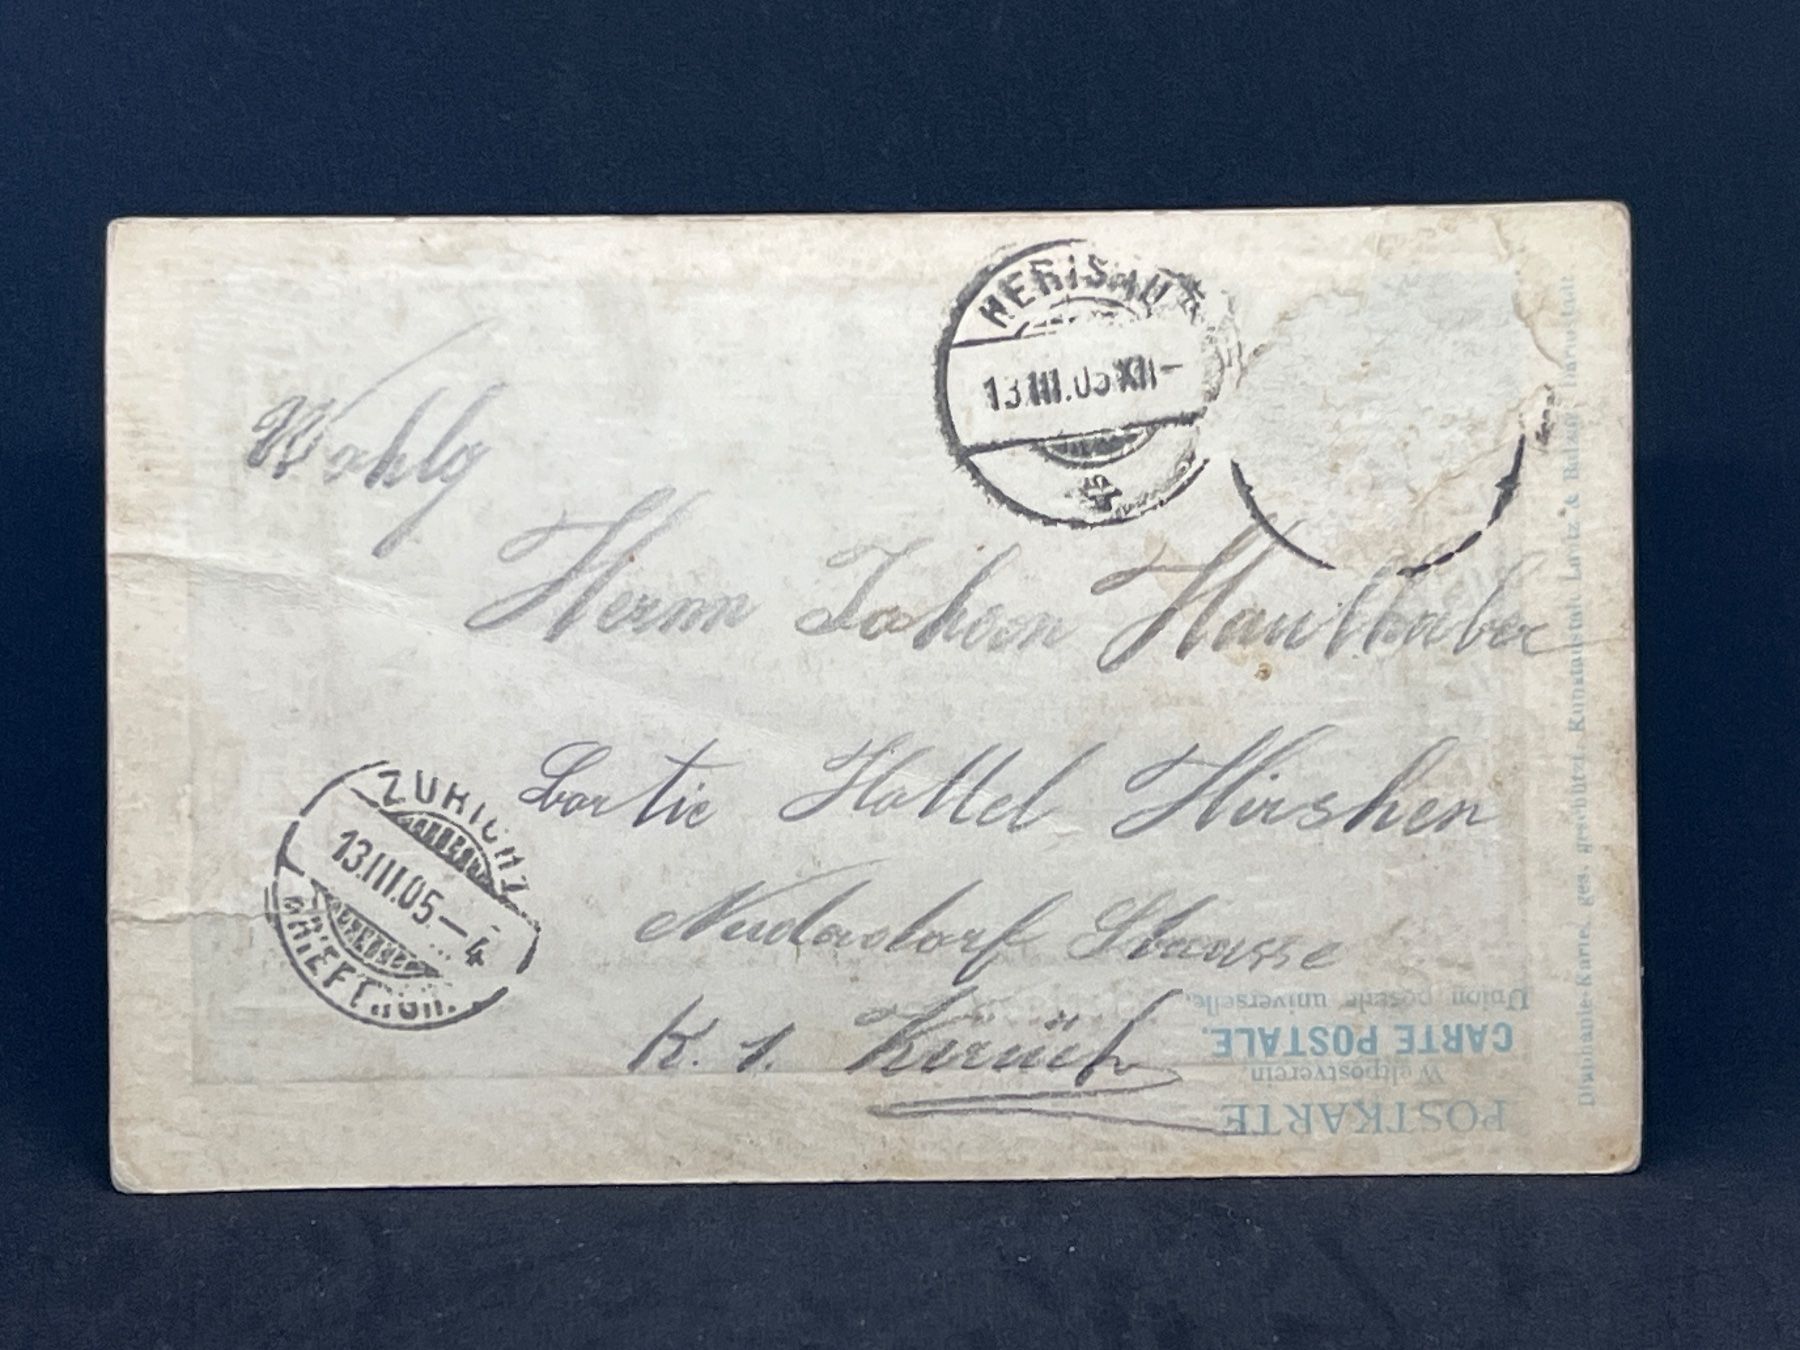 HERISAU
13.III.05.XII-
Wohlg
Herrn Johann Haulhaber
Portie Hottel Hirshen
Niederdorf Strasse
K. 1. Zürich
ZÜRICH 1
13.III.05-4
BRIEFTRÄGER.
POSTKARTE
Weltpostverein.
CARTE POSTALE.
Union postale universelle.
Diaphanie-Karte, ges. geschützt. Kunstanstalt Lautz & Balzar, Darmstadt